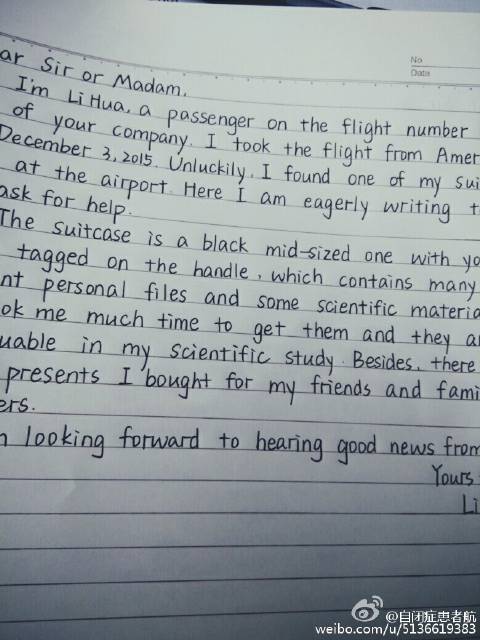 No
Date
ar Sir or Madam,
I'm Li Hua, a passenger on the flight number
of your company. I took the flight from Amer
December 3, 2015. Unluckily, I found one of my sui
at the airport. Here I am eagerly writing t
ask for help.
The suitcase is a black mid-sized one with yo
tagged on the handle, which contains many
nt personal files and some scientific materia
ok me much time to get them and they a
uable in my scientific study. Besides, there
presents I bought for my friends and fami
ers.
looking forward to hearing good news from
Yours
Li
@自闭症患者航
weibo.com/u/5136619383